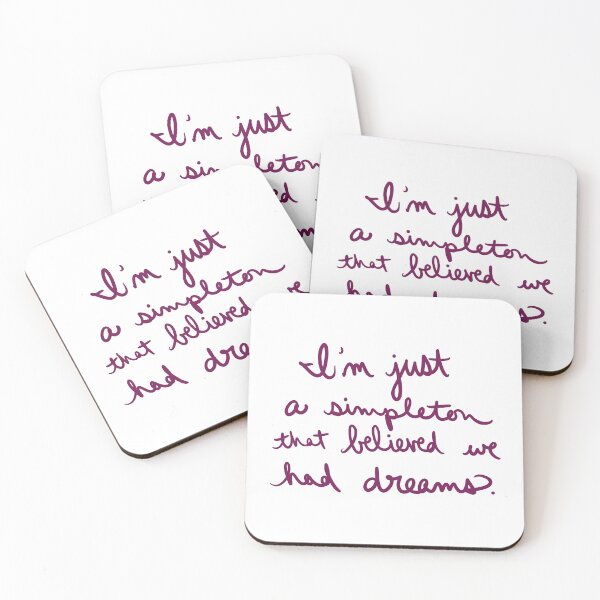 I'm just
a
I'm just
a simpleton
that believed we
had
I'm just
a simpleton
that believed
had
I'm just
a simpleton
that believed we
had dreams.